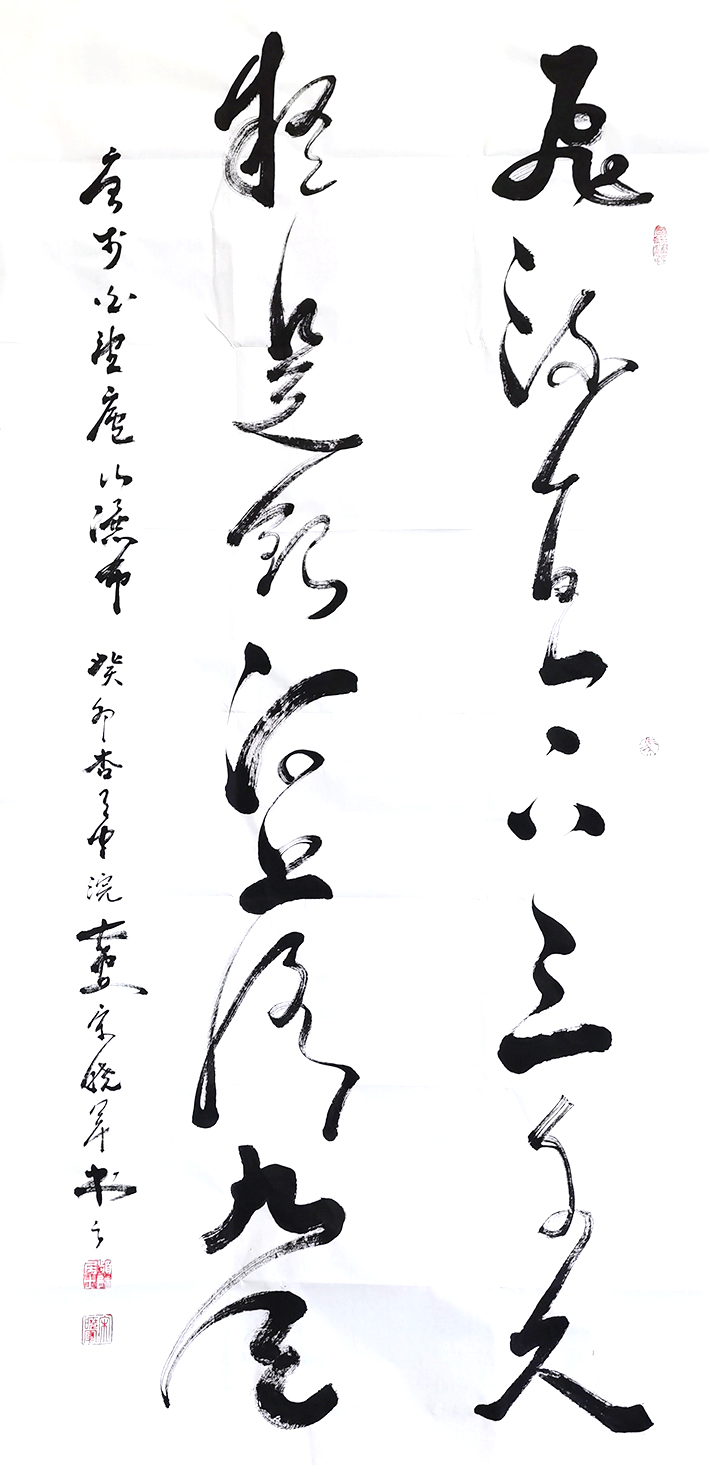 飛流直下三千尺
疑是銀河落九天
唐李白望廬山瀑布 癸卯杏月中浣 宋曉軍书之